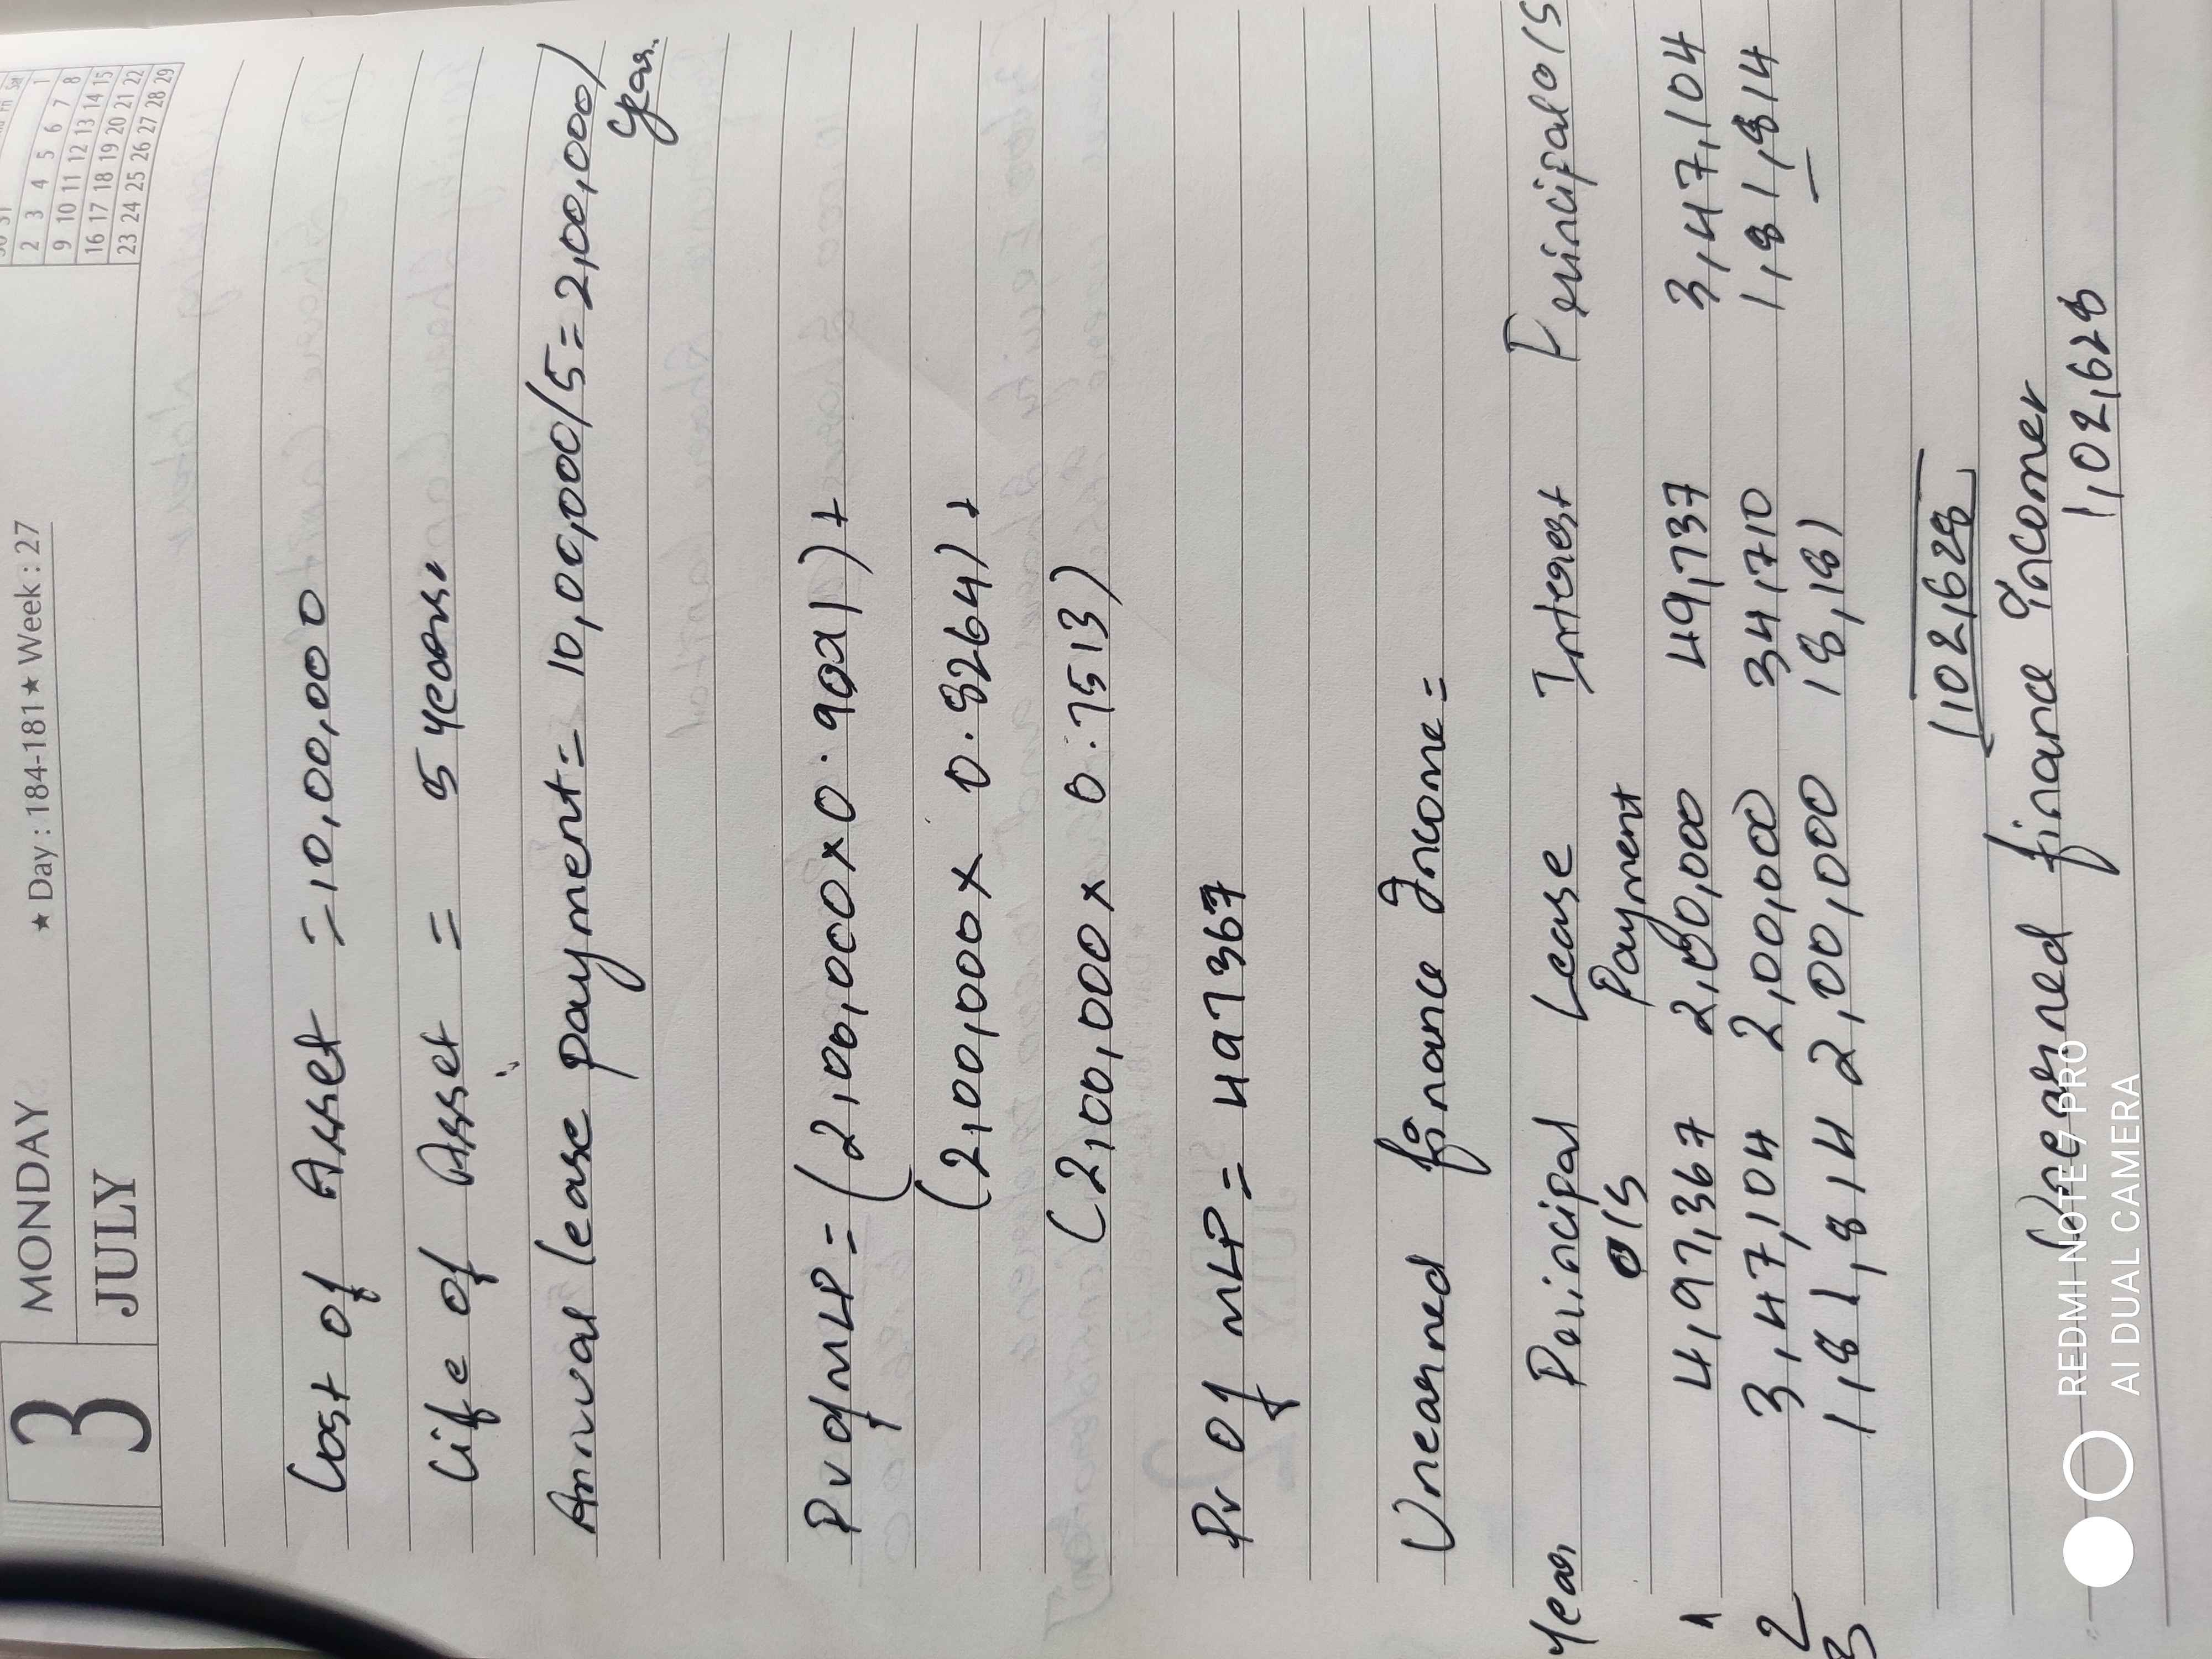 3 MONDAY ★ Day : 184-181 ★ Week : 27
JULY
30 31
2 3 4 5 6 7 8
9 10 11 12 13 14 15
16 17 18 19 20 21 22
23 24 25 26 27 28 29
Cost of Asset = 10,00,000
Life of Asset = 5 years.
Annual lease payment = 10,00,000/5 = 2,00,000/
year.
PV of MLP = (2,00,000 x 0.9091) +
(2,00,000 x 0.8264) +
(2,00,000 x 0.7513)
PV of MLP = 497367
Unearned finance Income =
Year Principal Lease Interest Principal o/s
o/s Payment
1 4,97,367 2,00,000 49,737 3,47,104
2 3,47,104 2,00,000 34,710 1,81,814
3 1,81,814 2,00,000 18,181 —
1102,628
Unearned finance income
1,02,628
REDMI NOTE 7 PRO
AI DUAL CAMERA